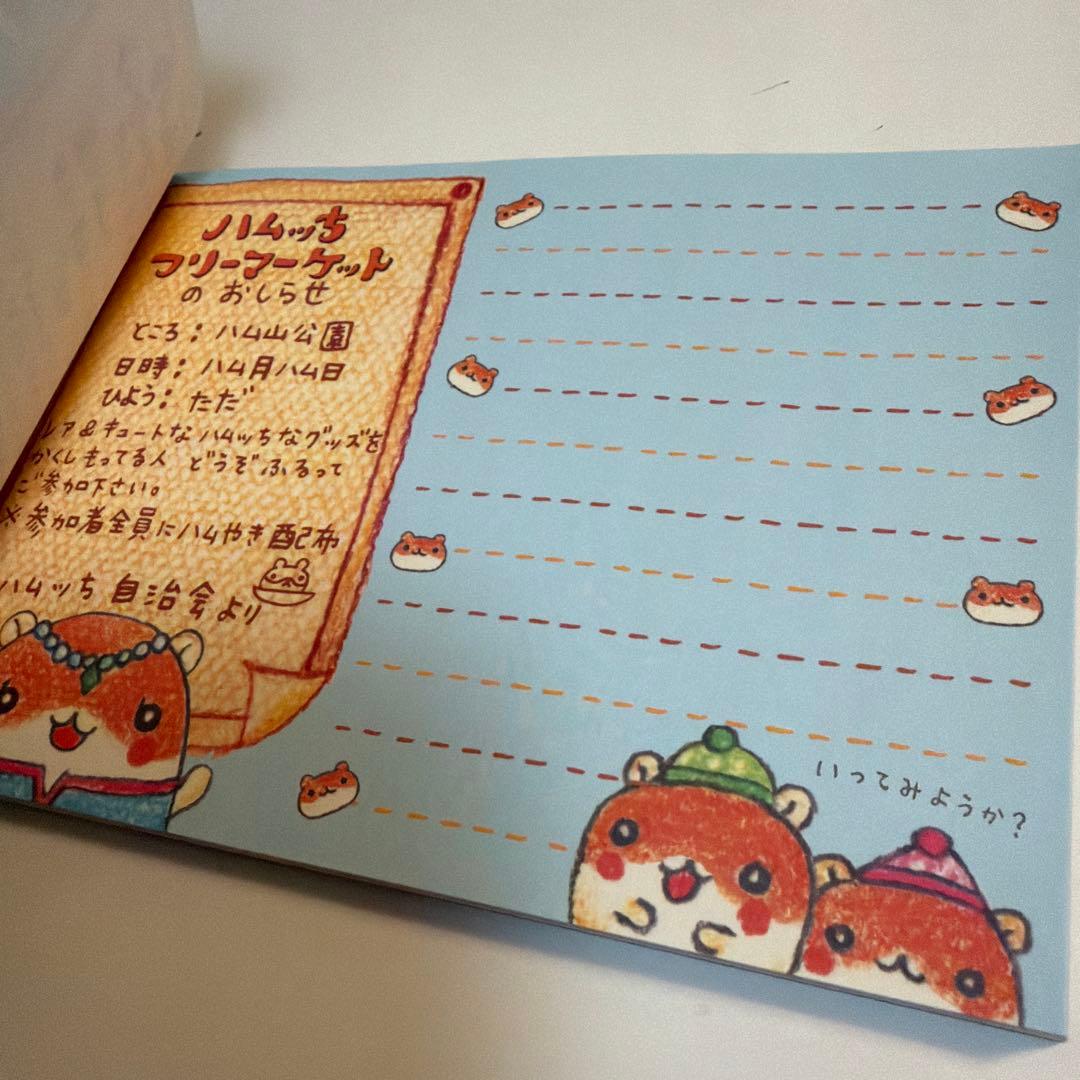 ハムッち
フリーマーケット
の おしらせ
ところ：ハム山公園
日時：ハム月ハム日
ひよう：ただ
レア＆キュートなハムッちなグッズを
かくしもってる人 どうぞふるって
ご参加下さい。
※参加者全員にハムやき配布
ハムッち 自治会より
いってみようか？